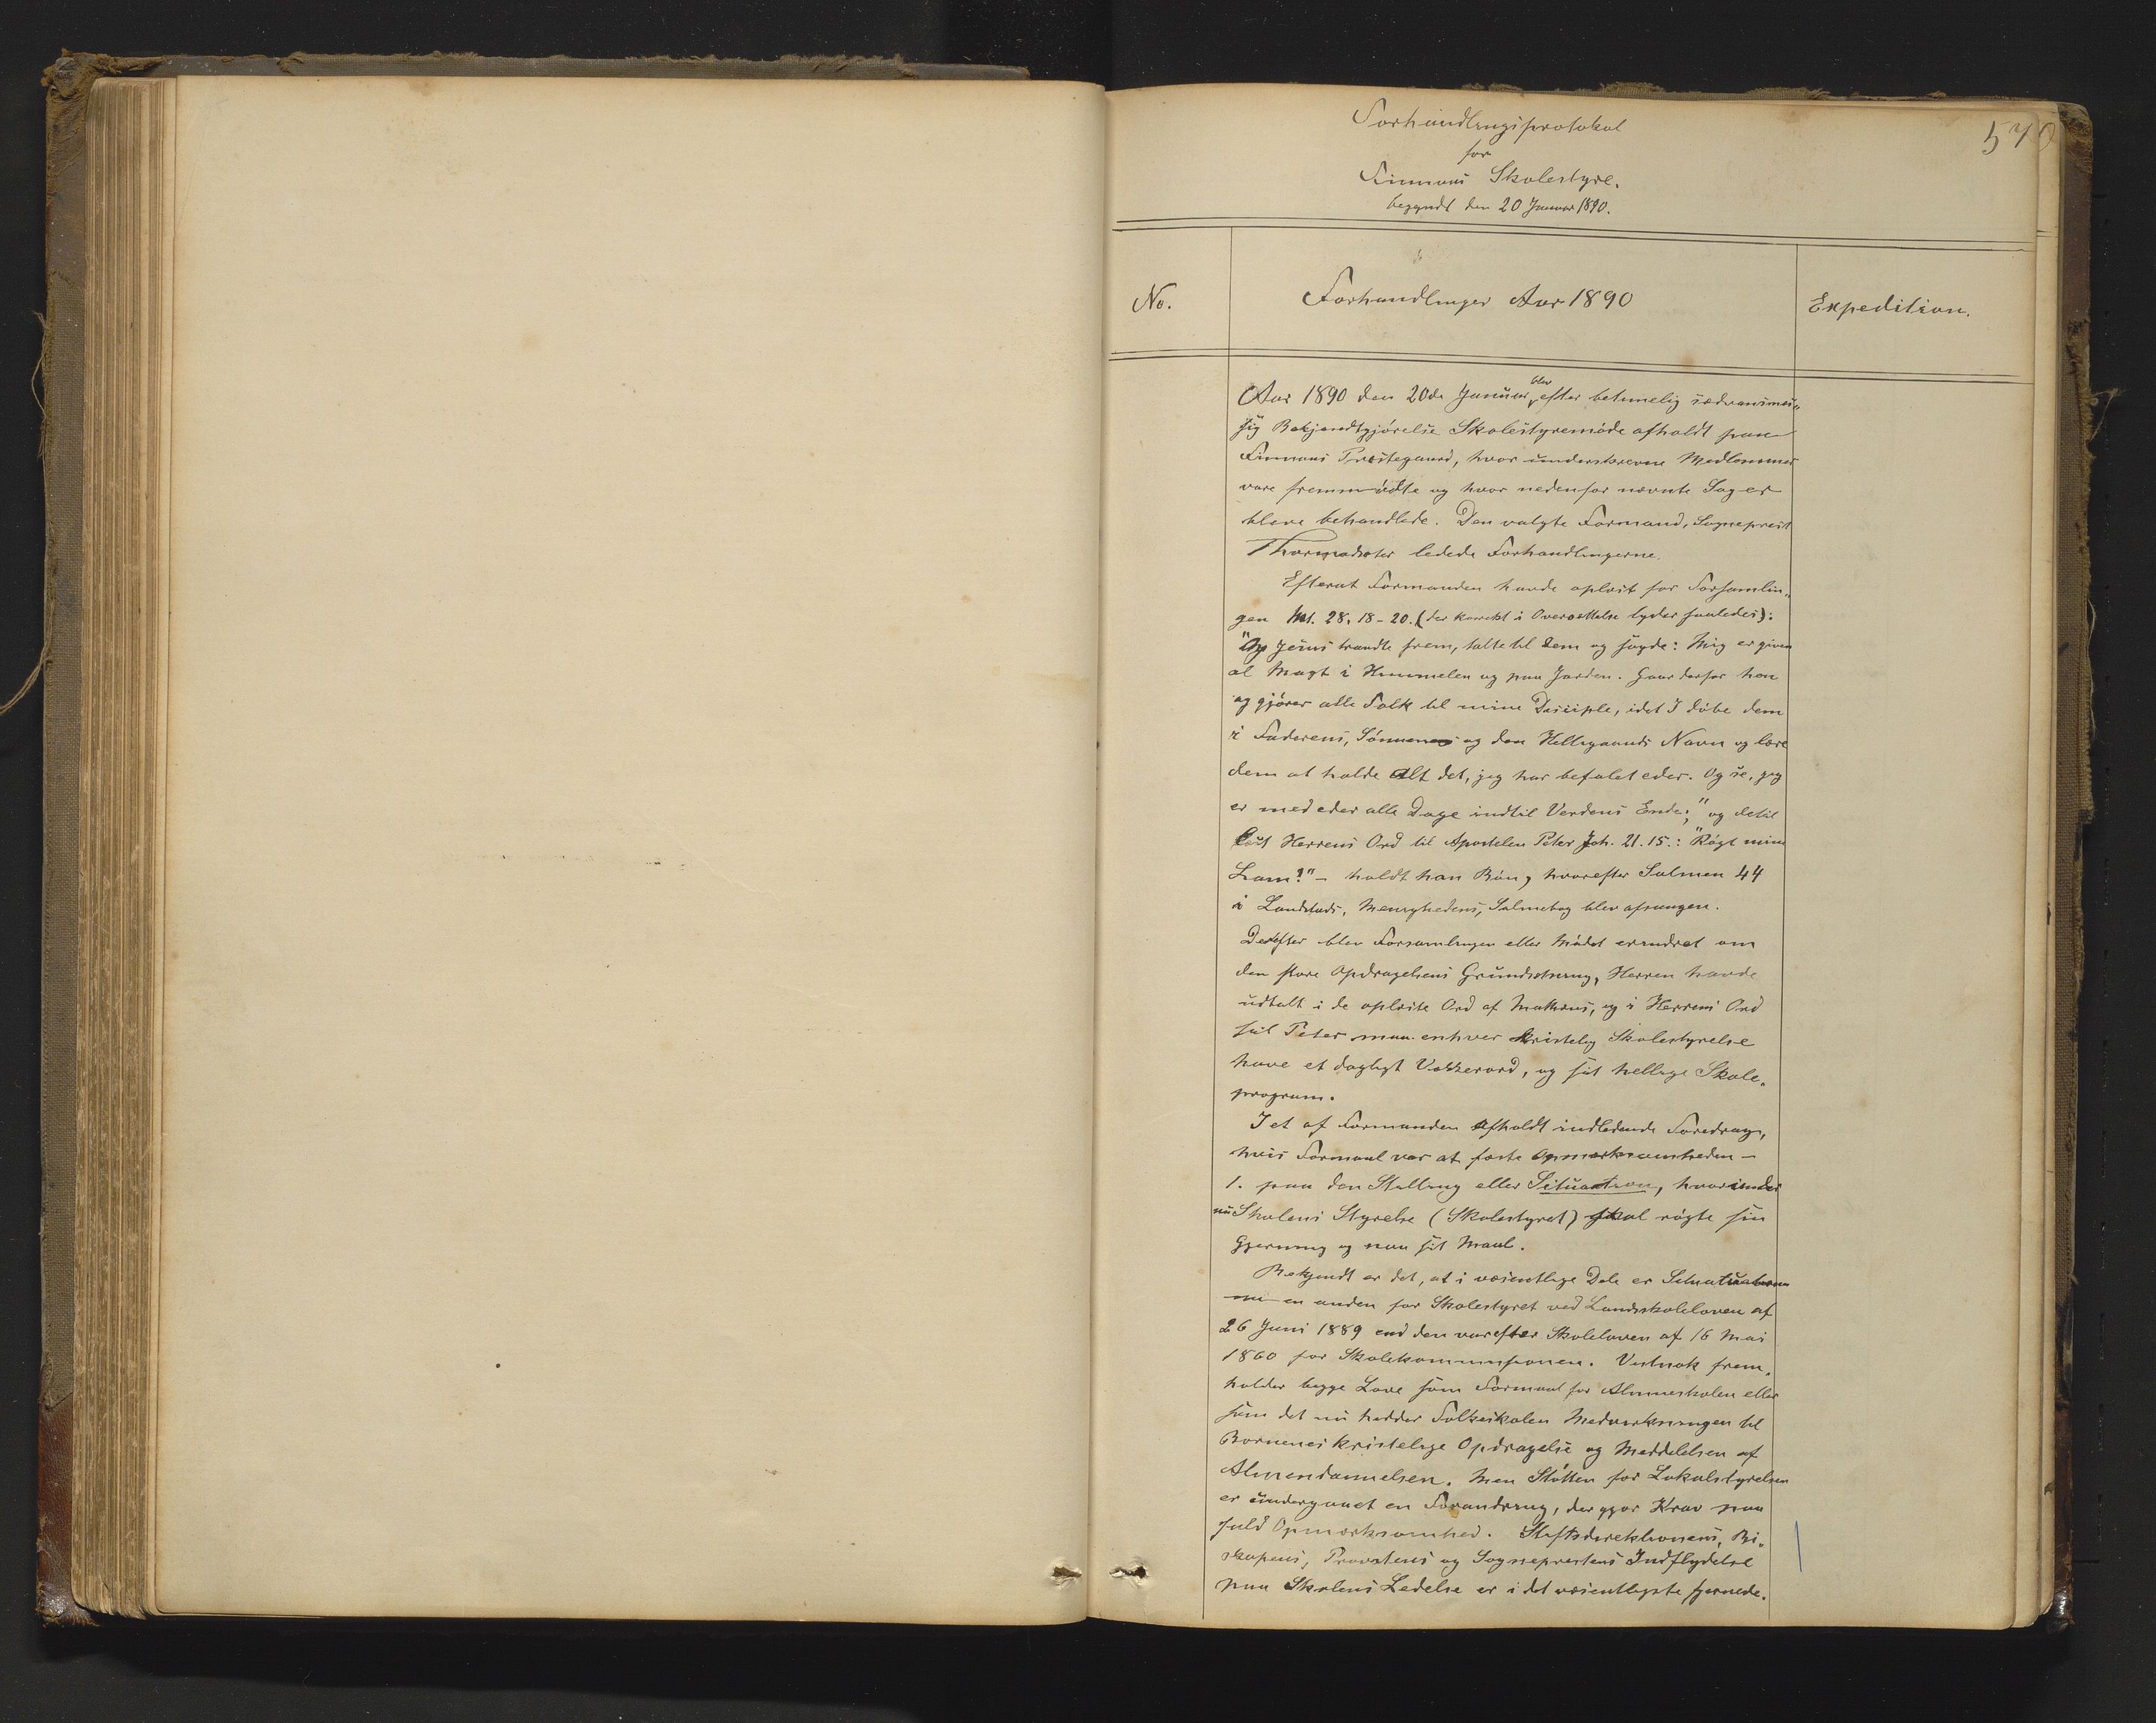 570
Forhandlingsprotokol
for
Finnøens Skolestyre.
begyndt den 20 Januar 1890.
No.
Forhandlinger Aar 1890
Expedition.
Aar 1890 den 20de Januar blev efter betimelig sædvansmæs„
sig Bekjendtgjørelse Skolestyremøde afholdt paa
Præstegaard, hvor underskrevne Medlemmer
vare fremmødte og hvor nedenfor nævnte Sager
bleve behandlede. Den valgte Formand, Sogneprest
ledede Forhandlingerne.
Efterat Formanden havde oplæst for Forsamlin„
gen Mt. 28, 18-20. (der korrekt i Oversættelse lyder saaledes):
"Og Jesus traadte frem, talte til dem og sagde: Mig er given
al Magt i Himmelen og paa Jorden. Gaar derfor hen
og gjører alle Folk til mine Disciple, idet I døbe dem
i Faderens, Sønnens og den Helligaands Navn og lære
dem at holde alt det, jeg har befalet eder. Og se, jeg
er med eder alle Dage indtil Verdens Ende;" og dertil
Herrens Ord til Apostelen Peter Joh. 21. 15.: "Røgt mine
Lam!" - holdt han Bøn, hvorefter Salmen 44
i Landstads, Menighedens, Salmebog blev afsungen.
Derefter blev Forsamlingen eller Mødet erindret om
den store Opdragelsens Grundsætning, Herren havde
udtalt i de oplæste Ord af Mathæus, og i Herrens Ord
til Peter maa enhver kristelig Skolestyrelse
have et dagligt Vækkerord, og sit hellige Skole„
program.
I et af Formanden afholdt indledende Foredrag,
hvis Formaal var at fæste Opmærksomheden -
1. paa den Stilling eller Situation, hvorunder
nu Skolens Styrelse (Skolestyret) skal røgte sin
Gjerning og naa sit Maal.
Bekjendt er det, at i væsentlige Dele er Situationen
en anden for Skolestyret ved Landsskoleloven af
26 Juni 1889 end den var efter Skoleloven af 16 Mai
1860 for Skolekommissionen. Vistnok frem„
holder begge Love som Formaal for Almueskolen eller
som det nu hedder Folkeskolen Medvirkningen til
Børnenes kristelige Opdragelse og Meddelelsen af
Almendannelsen. Men Støtten for Lokalstyrelsen
er undergaaet en Forandring, der gjør Krav paa
fuld Opmærksomhed. Stiftsdirektionens, Bi„
skopens, Provstens og Sogneprestens Indflydelse
paa Skolens Ledelse er i det væsentligste fjernede.